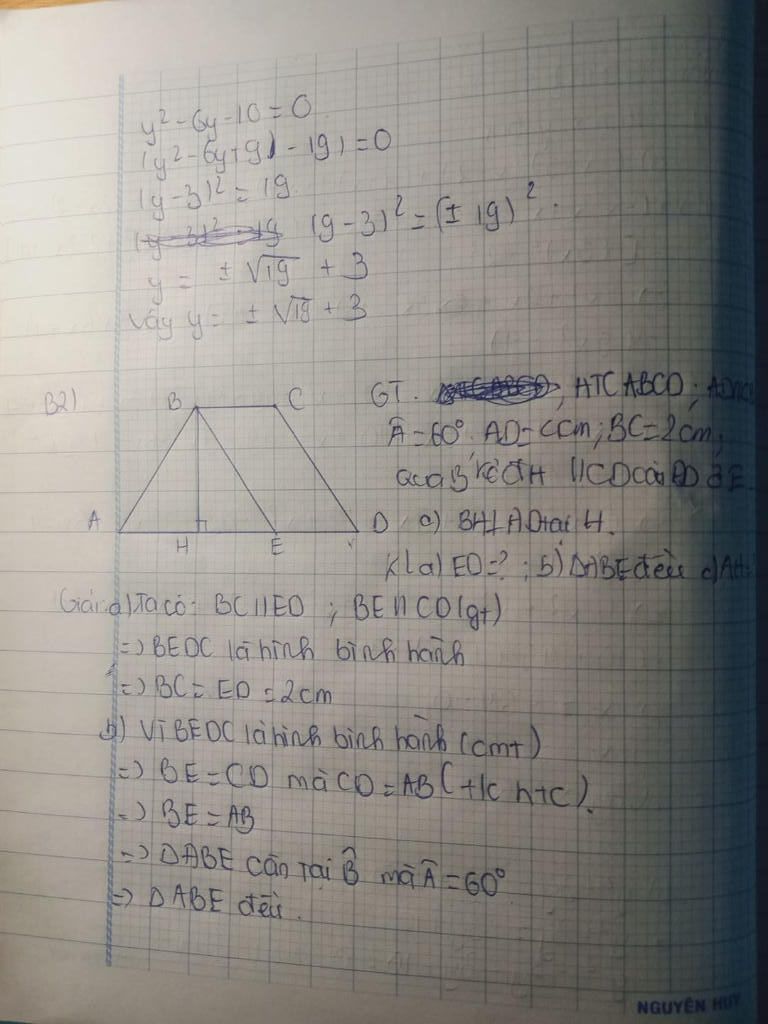 y² - 6y - 10 = 0
(y² - 6y + 9) - 19) = 0
(y - 3)² = 19
(y - 3)² = (± 19)².
y = ± √19 + 3
Vậy y = ± √19 + 3
B2)
B C
A H E D
GT. HTC ABCD;
Â = 60°. AD = BC = 2cm;
kẻ đt // CD cắt AD ở E
c) BH ⊥ AD tại H.
KL a) ED = ?; b) ΔABE đều c) AH
Giải: a) Ta có: BC // ED; BE // CD (gt)
=> BEDC là hình bình hành
=> BC = ED = 2cm
b) Vì BEDC là hình bình hành (cmt)
=> BE = CD mà CD = AB (t/c htc).
=> BE = AB
=> ΔABE cân tại B̂ mà Â = 60°
=> ΔABE đều.
NGUYÊN HUY